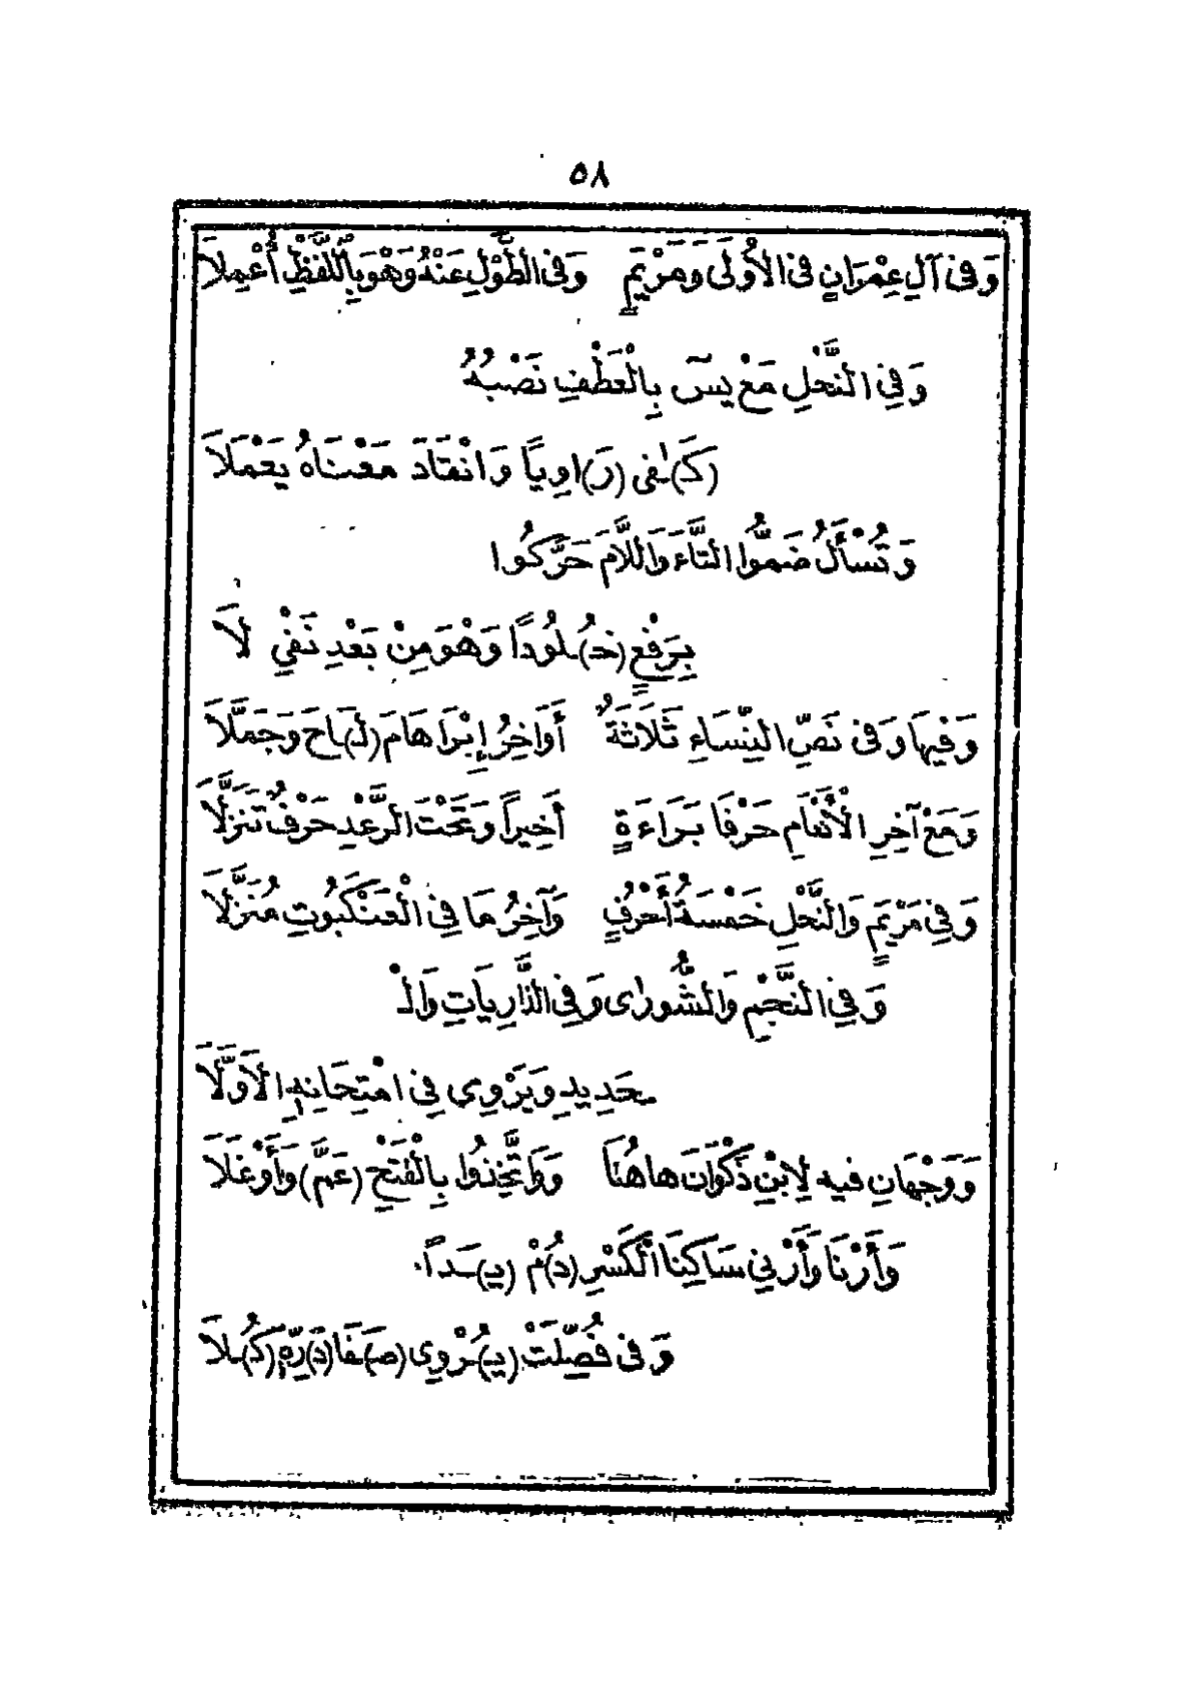 ٥٨
وَفِى آلِ عِمْرَانٍ فِى الْأُولَى وَمَرْيَمٍ وَفِى الطَّوْلِ عَنْهُ وَهْوَ بِاللَّفْظِ أُعْمِلاَ
وَفِى النَّحْلِ مَعْ يسٓ بِالْعَطْفِ نَصْبُهُ
(كَـ)ـفٰى (رَ)اوِياً وَانْقَادَ مَعْنَاهُ يَعْمَلاَ
وَتُسْأَلُ ضَمُّوا التَّاءَ وَاللاَّمَ حَرَّكُوا
بِرَفْعٍ (خُـ)ـلُودًا وَهْوَ مِنْ بَعْدِ نَفْىِ لاَ
وَفِيهَا وَفِى نَصِّ النِّسَاءِ ثَلاَثَةٌ أَوَاخِرُ إِبْرَاهَامَ (لَـ)ـاحَ وَجَمَّلاَ
وَمَعْ آخِرِ الْأَنْعَامِ حَرْفَا بَرَاءَةٍ أَخِيراً وَتَحْتَ الرَّعْدِ حَرْفٌ تَنَزَّلاَ
وَفِى مَرْيَمٍ وَالنَّحْلِ خَمْسَةُ أَحْرُفٍ وَآخِرُ مَا فِى الْعَنْكَبُوتِ مُنَزَّلاَ
وَفِى النَّجْمِ وَالشُّورٰى وَفِى الذَّارِيَاتِ وَالْـ
ـحَدِيدِ وَيَرْوِى فِى امْتِحَانِهِ الْأَوَّلاَ
وَوَجْهَانِ فِيهِ لِابْنِ ذَكْوَانَ هَاهُنَا وَوَاتَّخِذُوا بِالْفَتْحِ (عَمَّ) وَأَوْغَلاَ
وَأَرْنَا وَأَرْنِى سَاكِنَا الْكَسْرِ (دُ)مْ (يَـ)ـدًا
وَفِى فُصِّلَتْ (يُـ)ـرْوِى (صَـ)ـفَا (دَ)رِّهِ (كُـ)ـلاَ